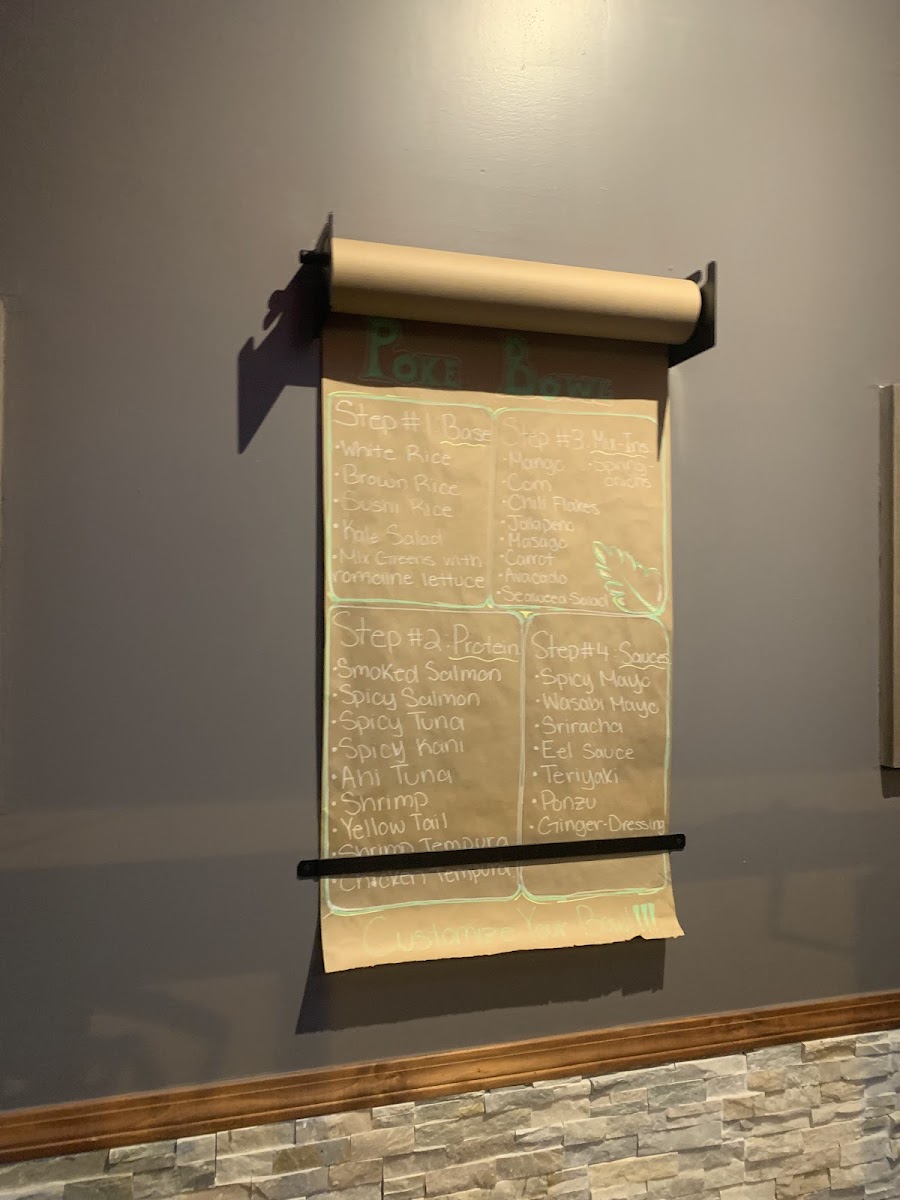 Poke Bowl
Step #1: Base
• White Rice
• Brown Rice
• Sushi Rice
• Kale Salad
• Mix Greens with
romaine lettuce
Step #3: Mix-Ins
• Mango
• Corn
• Chili Flakes
• Jalapeno
• Masago
• Carrot
• Avacado
• Seaweed Salad
• Spring-
onions
Step #2: Protein
• Smoked Salmon
• Spicy Salmon
• Spicy Tuna
• Spicy Kani
• Ahi Tuna
• Shrimp
• Yellow Tail
• Shrimp Tempura
• Chicken Tempura
Step #4: Sauces
• Spicy Mayo
• Wasabi Mayo
• Sriracha
• Eel Sauce
• Teriyaki
• Ponzu
• Ginger-Dressing
Customize Your Bowl!!!